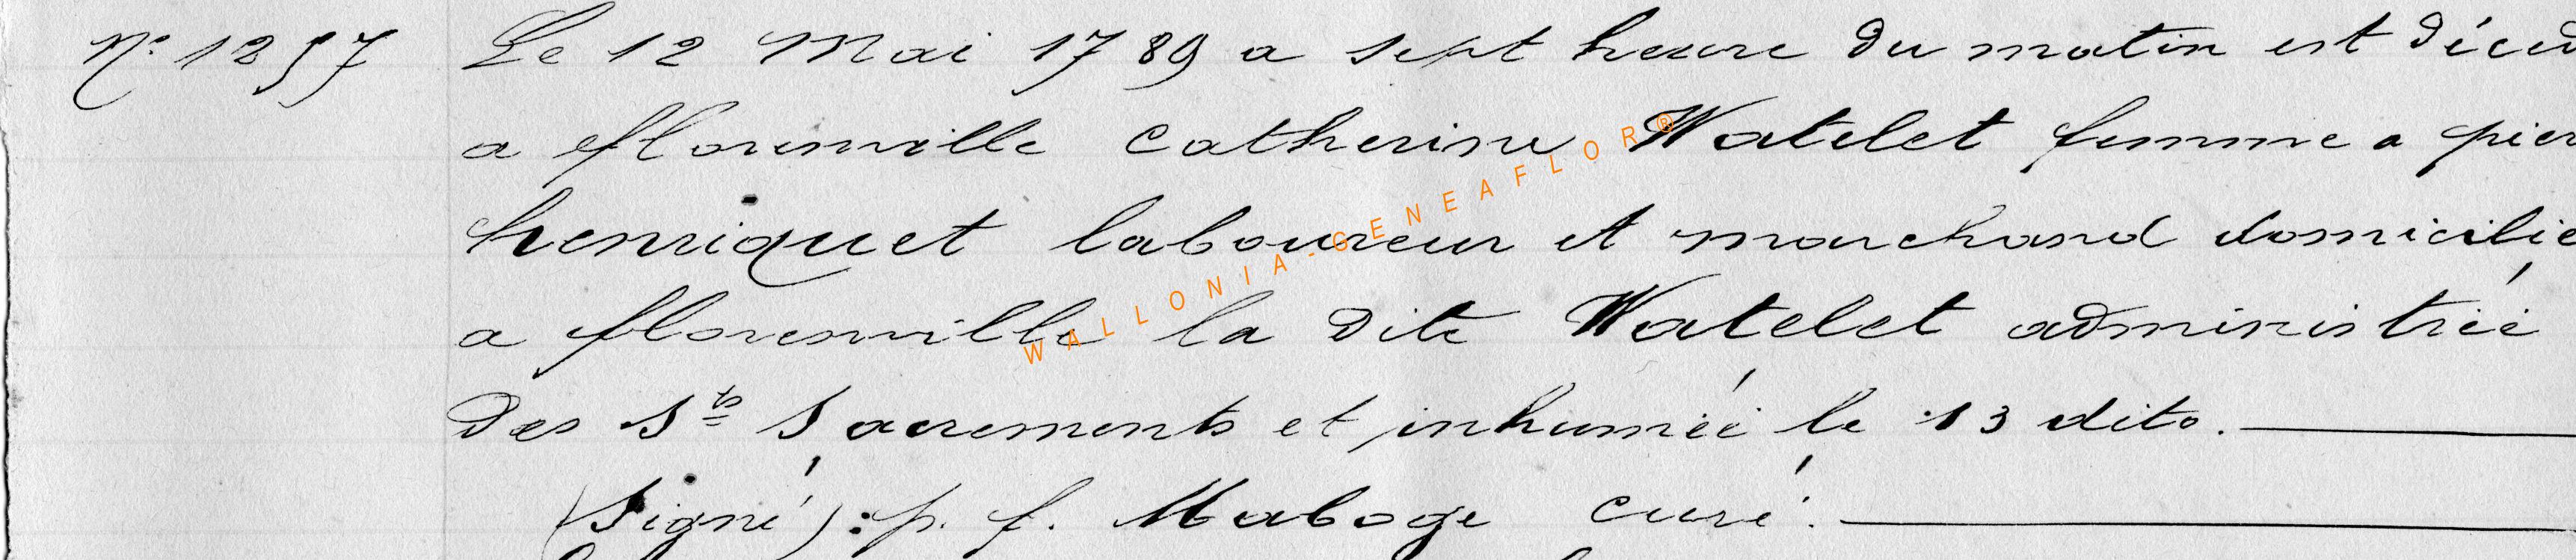 N° 1257 Le 12 Mai 1789 a sept heure du matin est décéd
a florenville Catherine Watelet femme a pier
henriquet laboureur et marchand domicilié
a florenville la dite Watelet administrée
des Sts Sacrements et inhumée le 13 dito.
(Signé): p. f. Maboge curé.
WALLONIA-GENEAFLOR®